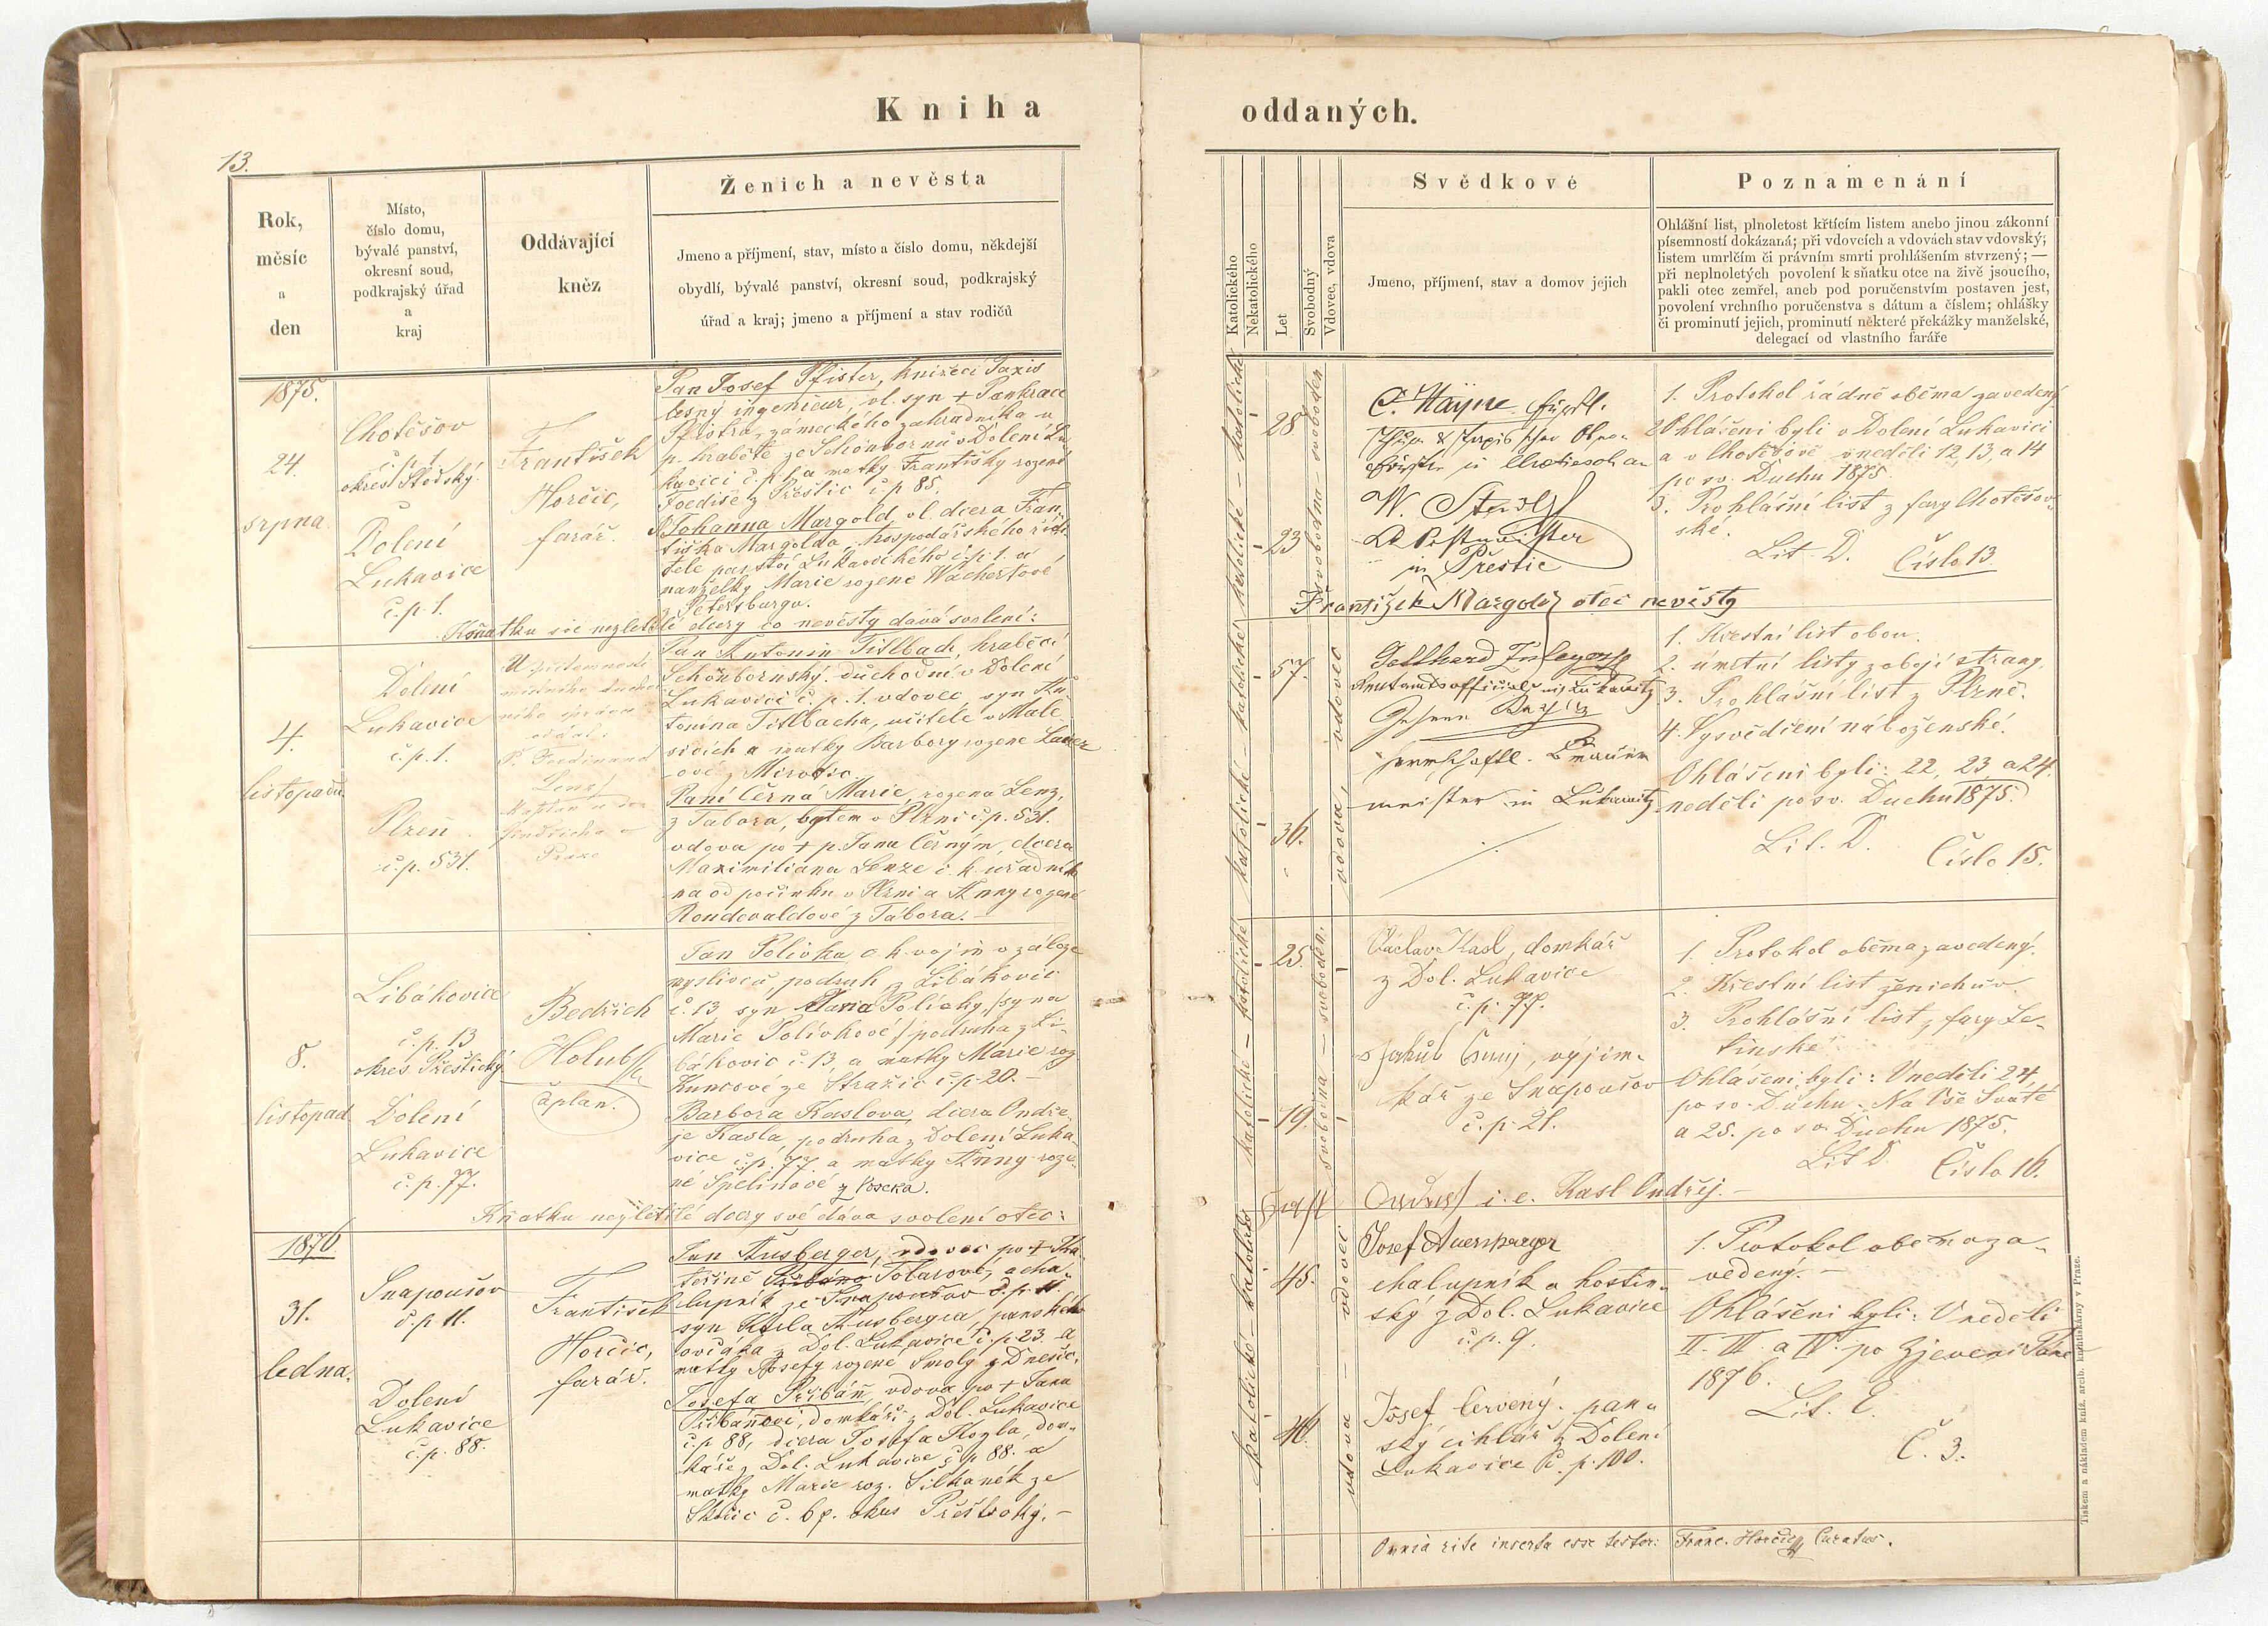 Kniha oddaných.
13.
Rok,
měsíc
a
den
Místo,
číslo domu,
bývalé panství,
okresní soud,
podkrajský úřad
a
kraj
Oddávající
kněz
Ženich a nevěsta
Jmeno a příjmení, stav, místo a číslo domu, někdejší
obydlí, bývalé panství, okresní soud, podkrajský
úřad a kraj; jmeno a příjmení a stav rodičů
Katolického
Nekatolického
Let
Svobodný
Vdovec, vdova
Svědkové
Jmeno, příjmení, stav a domov jejich
Poznamenání
Ohlášní list, plnoletost křtícím listem anebo jinou zákonní
písemností dokázaná; při vdovcích a vdovách stav vdovský;
listem umrlčím či právním smrti prohlášením stvrzený; —
při neplnoletých povolení k sňatku otce na živě jsoucího,
pakli otec zemřel, aneb pod poručenstvím postaven jest,
povolení vrchního poručenstva s dátum a číslem; ohlášky
či prominutí jejich, prominutí některé překážky manželské,
delegací od vlastního faráře
1875.
24.
srpna.
Chotěšov
č. p. 1.
okres Stodský.
Dolení
Lukavice
č. p. 1.
František
Horčic,
farář.
Pan Josef Pfister, knížecí Taxis
lesný ingenieur, vl. syn + Pankrace
Pfistra, zámeckého zahradníka u
p. hraběte ze Schönbornů v Dolení Lu
kavici č. p. 1. a matky Františky rozené
z Přeštic č. p. 85.
Johanna Margold vl. dcera Fran
tiška Margolda hospodářského ředi
tele panství Lukavického č. p. 1. a
manželky Marie rozené
z Petersburgu.
K sňatku své nezletilé dcery co nevěsty dává svolení:
28
23
katolické
svobodna - svoboden
C. Hayne
W.
Postmeister
in Přestic
František Margold otec nevěsty
1. Protokol řádně oběma zavedený
2 Ohlášeni byli v Dolení Lukavici
a v Chotěšově v neděli 12, 13, a 14
po sv. Duchu 1875.
3. Prohlášní list z fary Chotěšov-
ské.
Lit. D. Číslo 13.
4.
listopadu.
Dolení
Lukavice
č. p. 1.
Plzeň
č. p. 531.
P. Ferdinand
Lenz,
Pan Antonín Titlbach, hraběcí
Schönbornský důchodní v Dolení
Lukavici č. p. 1. vdovec, syn An
tonína Titlbacha, učitele v Male
sicích a matky Barbory rozené Lauer
ové z Mirovic.
Paní Černá Marie, rozena Lenz,
z Tabora, bytem v Plzni č. p. 531.
vdova po + p. Janu Černým, dcera
Maximiliana Lenze c. k. uřadníka
na odpočinku v Plzni a Anny rozené
Rondevaldové z Tábora.
57.
36.
vdova, vdovec
Gotthard
in Lukawitz
herrschaftl.
meister in Lukawitz
1. Křestní list obou.
2. úmrtní listy z obojí strany.
3. Prohlášní list z Plzně.
4. Vysvědčení náboženské.
Ohlášeni byli: 22, 23, a 24.
neděli po sv. Duchu 1875.
Lit. D. Číslo 15.
8.
listopad
Libákovice
č. p. 13
okres Přeštický
Dolení
Lukavice
č. p. 77.
Bedřich
Holub
Jan Polívka c. k. vojín v záloze
myslivců, podruh z Libákovic
č. 13, syn Jana Polívky, /syna
Marie Polívkové/ podruha z Li-
bákovic č. 13, a matky Marie roz.
Kuncové ze Stražic č. p. 20. -
Barbora Kaslova, dcera Ondře
je Kasla, podruha z Dolení Luka
vice č. p. 77. a matky Anny roze
né Špelinové z Poseka.
K sňatku nezletilé dcery své dáva svolení otec:
25.
19.
svobodna - svoboden.
Václav Kasl, domkář
z Dol. Lukavice
č. p. 77.
Jakub
kář ze Snapoušov
č. p. 21.
i. e. Kasl Ondřej. -
1. Protokol oběma zavedený.
2. Křestní list ženichův.
3. Prohlášní list z fary Le-
tinské.
Ohlášeni byli: V neděli 24.
po sv. Duchu. Na Vše Svaté
a 25. po sv. Duchu 1875.
Lit D. Číslo 16.
1876.
31.
ledna.
Snapoušov
č. p. 11.
Dolení
Lukavice
č. p. 88.
František
Horčic,
farář.
Jan Ausberger, vdovec po + Ka
teřině Tobarové, a cha
lupník ze Snapoušov č. p. 11.
syn Karla Ausbergra, panského
ovčáka z Dol. Lukavice č. p. 23 a
matky Josefy rozené Smolý z Dnešic.
Josefa Přibáň, vdova po + Janu
Přibáňovi, domkáři z Dol. Lukavice
č. p. 88, dcera Josefa Kozla, dom-
káře z Dol. Lukavice č. p. 88. a
matky Marie roz. Silhanék ze
Skočic č. 67. okres Přeštický. -
45.
46.
vdova - vdovec
Josef Auersperger
chalupník a hostin-
ský z Dol. Lukavice
č. p. 9.
Josef Červený. pan-
ský cihlář z Dolení
Lukavice č. p. 100.
1. Protokol oběma za-
vedený. -
Ohlášeni byli: V neděli
II. III. a IV. po Zjevení Páně
1876.
Lit. E.
Č. 3.
Omnia rite inserta esse testor: Franc. Horčic Curatus.
Tiskem a nákladem kníž. arcib. knihtiskárny v Praze.